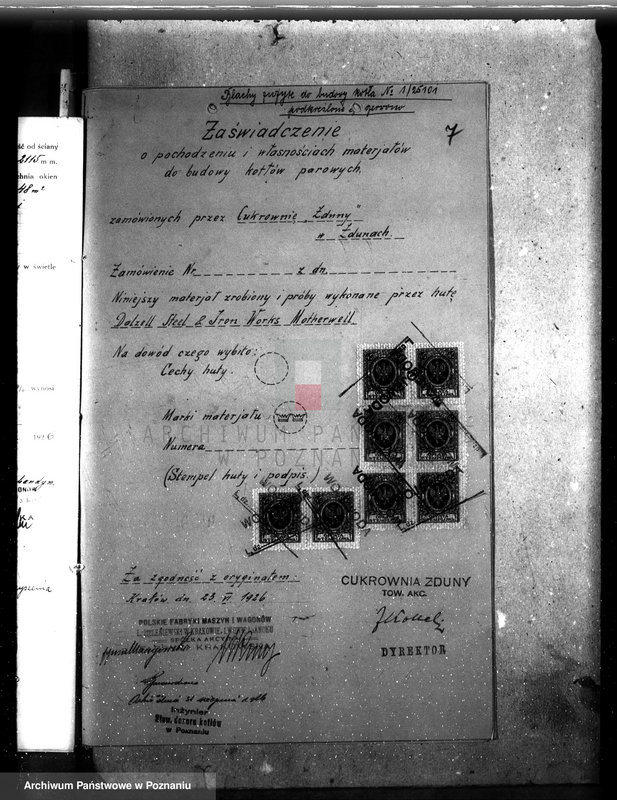 Blachy użyte do budowy kotła № 1/25101
podkreślono
7
Zaświadczenie
o pochodzeniu i własnościach materjałów
do budowy kotłów parowych,
zamówionych przez Cukrownię „Zduny"
w Zdunach.
Zamówienie Nr z dn.
Niniejszy materjał zrobiony i próby wykonane przez hutę
Dalzell Steel & Iron Works Motherwell
Na dowód czego wybito:
Cechy huty.
Marki materjału
Numera
(Stempel huty i podpis.)
Za zgodność z oryginałem.
Kraków dn. 23. VI 1926
CUKROWNIA ZDUNY
TOW. AKC.
DYREKTOR
POLSKIE FABRYKI MASZYN I WAGONÓW
L. ZIELENIEWSKI W KRAKOWIE, LWOWIE I SANOKU
SPÓŁKA AKCYJNA
KRAKÓW
Inżynier
Stow. dozoru kotłów
w Poznaniu
ość od ściany
2115 m m.
chnia okien
48 m²
w świetle
wynosi
192
ARCHIWUM PAŃ
W POZNAN
Archiwum Państwowe w Poznaniu